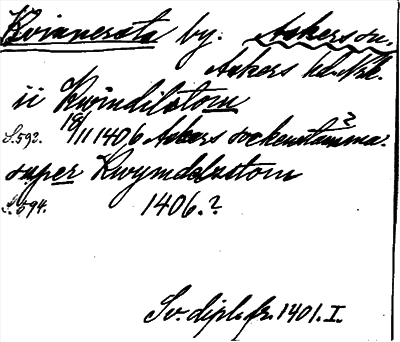 Kvinnersta by. Askers sn.
Askers hd. Nk.
ii Kwindilstom
S.592. 18/11 1406 Askers sockenstämma?
super Kwymdalastom
S.594. 1406.?
Sv. dipl. fr. 1401. I.